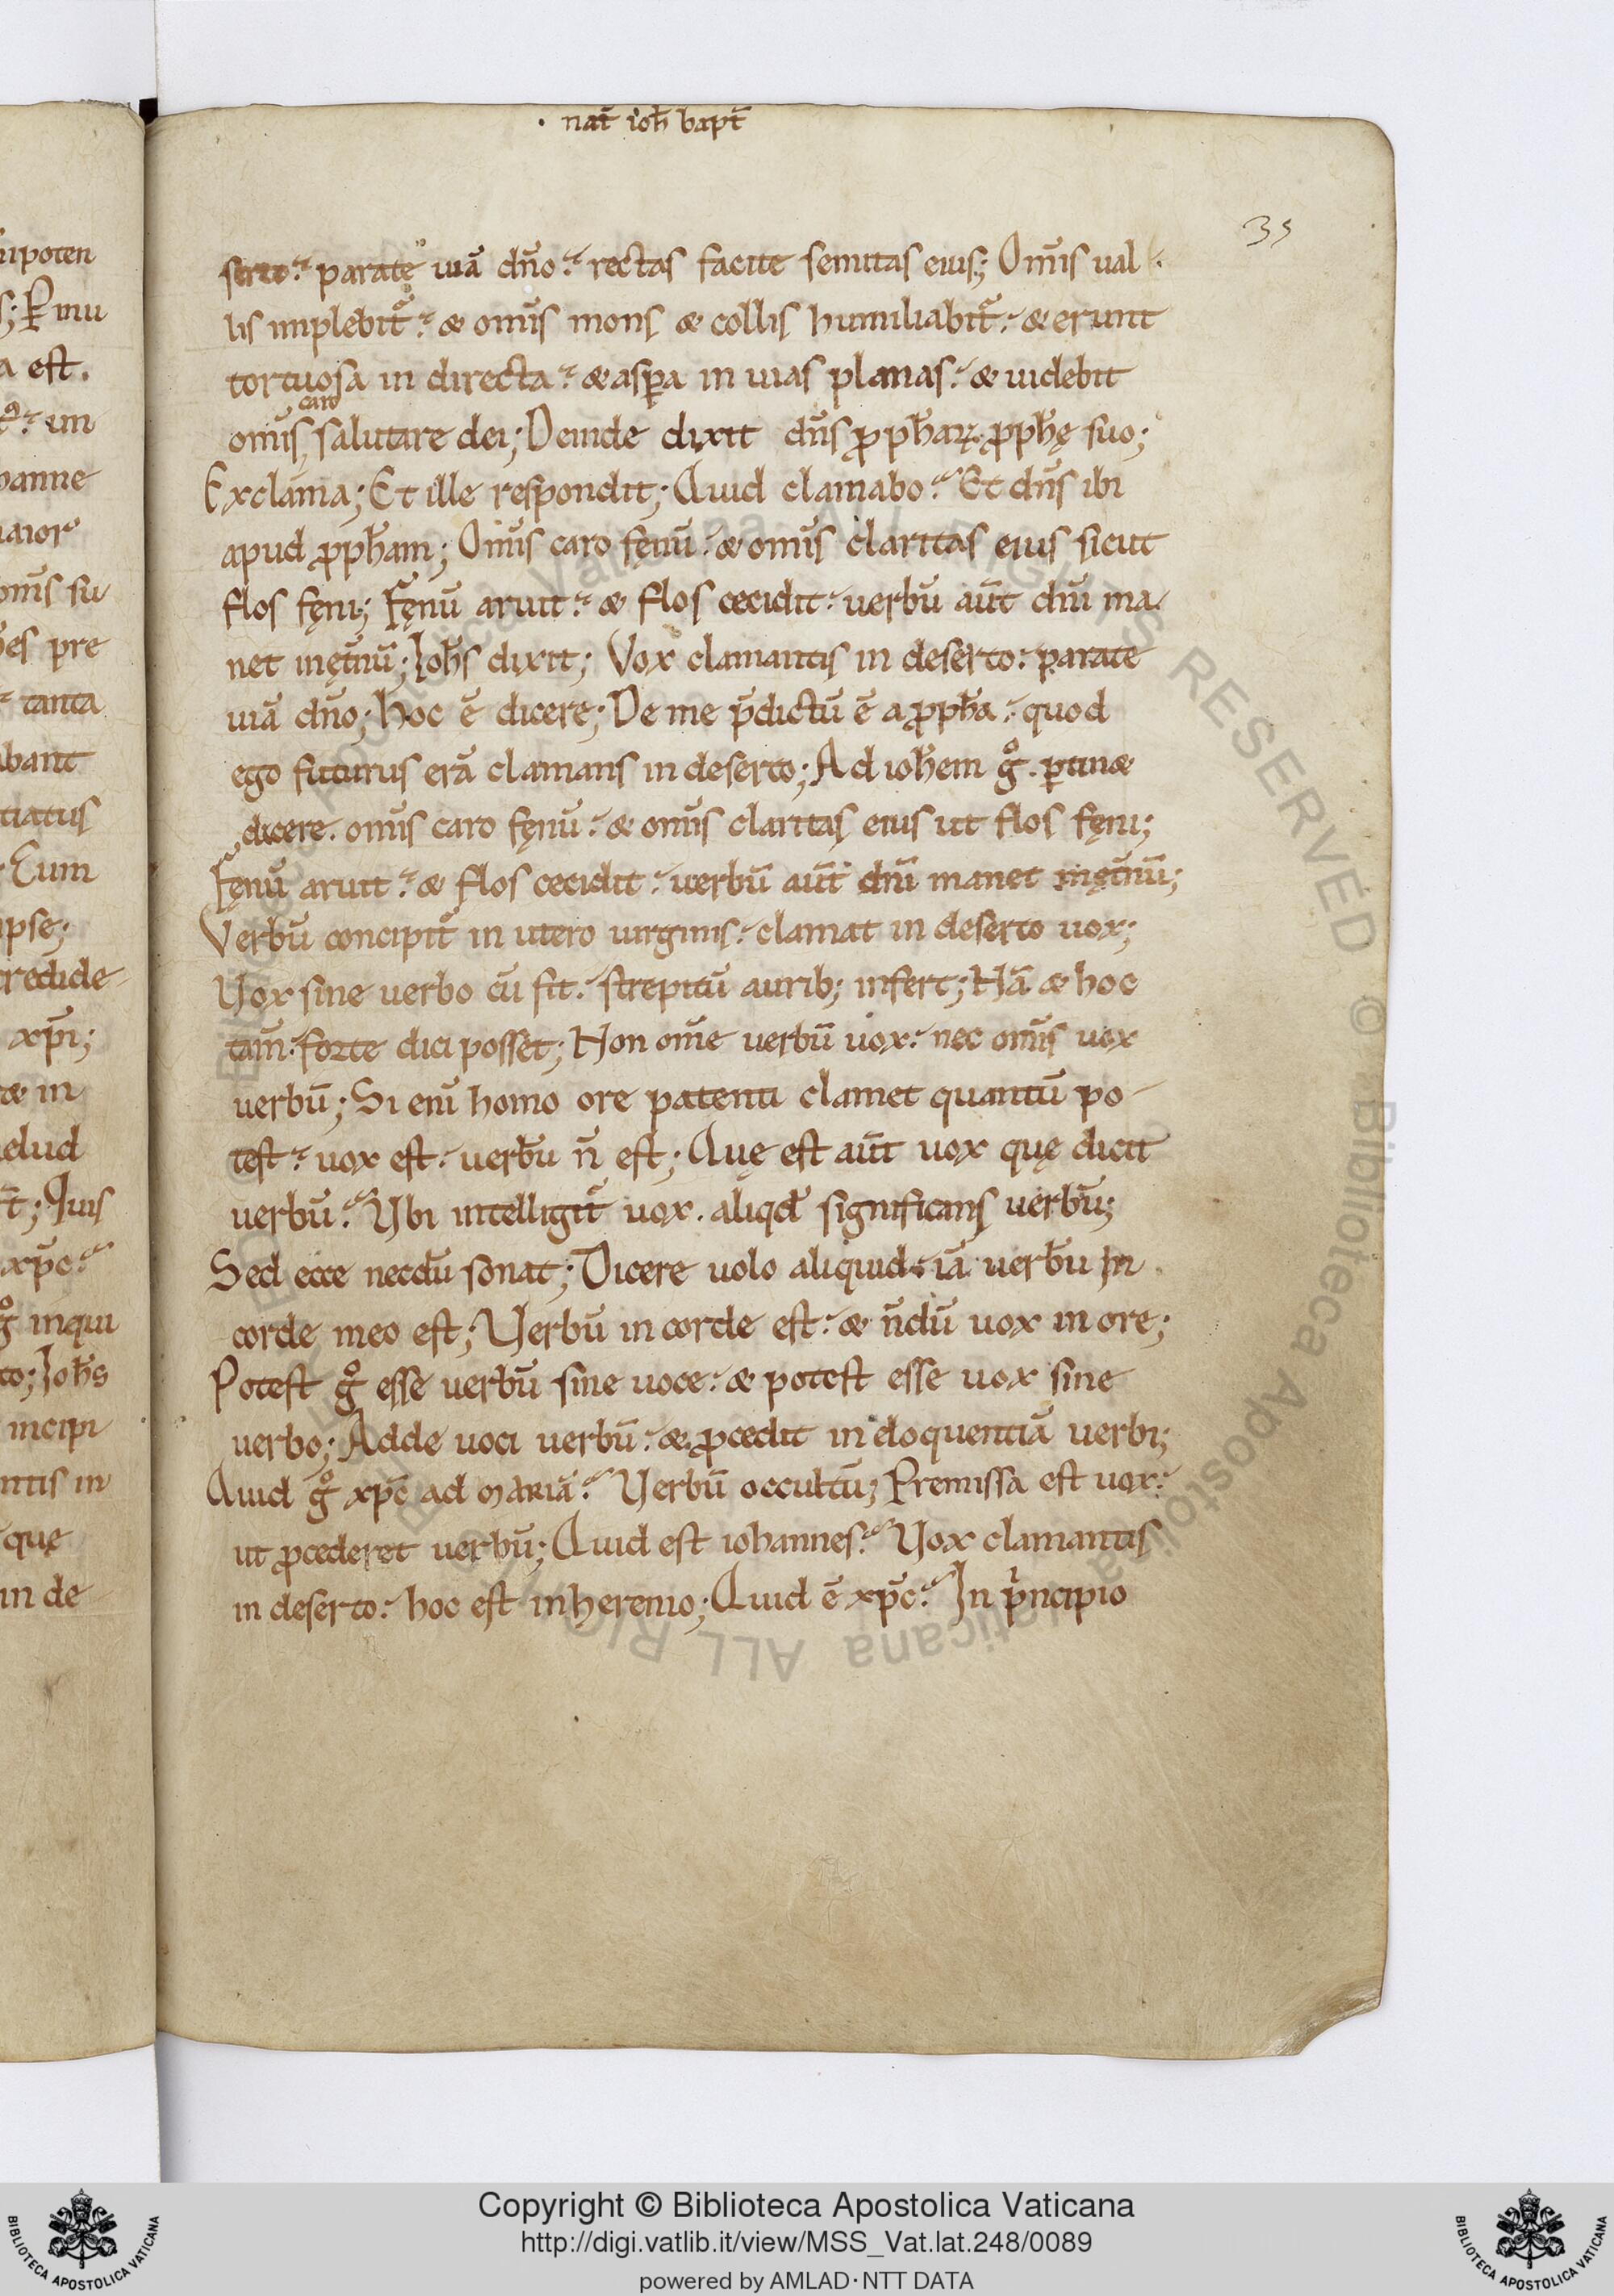 · nat̄ ioh̄ bapt̄
35
serto. parate uiā dn̄o. rectas facite semitas eius; Om̄is ual
lis implebit᷑. & om̄is mons & collis humiliabit᷑. & erunt
tortuosa in directa. & asꝑa in uias planas. & uidebit
caro
om̄is, salutare dei; Deinde dixit dn̄s ꝓph̄aꝝ. ꝓph̄ę suo;
Exclama; Et ille respondit; Quid clamabo? Et dn̄s ibi
apud ꝓph̄am; Om̄is caro fęnū. & om̄is claritas eius sicut
flos fęni; Fęnū aruit. & flos cecidit. uerbū aūt dn̄i ma
net inęt̄nū; Ioh̄s dixit; Vox clamantis in deserto. parate
uiā dn̄o; Hoc ē dicere; De me p̄dictū ē a ꝓph̄a. quod
ego futurus erā clamans in deserto; Ad ioh̄em g̊. ꝑtin&
dicere. om̄is caro fęnū. & om̄is claritas eius ut flos fęni;
Fęnū aruit. & flos cecidit. uerbū aūt dn̄i manet inęt̄nū;
Verbū concipit᷑ in utero uirginis. clamat in deserto uox;
Vox sine uerbo cū sit. strepitū aurib; infert; Nā & hoc
tam̄. forte dici posset; Non om̄e uerbū uox. nec om̄is uox
uerbū; Si enī homo ore patenti clamet quantū po
test. uox est. uerbū n̄ est; Quę est aūt uox quę dicit
uerbū? Vbi intelligit᷑ uox. aliqd̄ significans uerbū;
Sed ecce necdū sonat; Dicere uolo aliquid. iā uerbū In
corde meo est; Verbū in corde est. & n̄dū uox in ore;
Potest g̊ esse uerbū sine uoce. & potest esse uox sine
uerbo; Adde uoci uerbū. & ꝓcedit in eloquentiā uerbi;
Quid g̊ xp̄c ad mariā? Verbū occultū; Premissa est uox.
ut ꝓcederet uerbū; Quid est iohannes? Vox clamantis
in deserto. hoc est inheremo; Quid ē xp̄c? In pͥncipio
nipoten
a est.
anne
maior
om̄is su
es pre
tanta
bant
tiatus
Eum
ipse;
credide
xp̄i;
& in
elud
Quis
xp̄c?
g̊ inqui
to; Ioh̄s
incipi
ntis in
quę
in de
Copyright © Biblioteca Apostolica Vaticana
http://digi.vatlib.it/view/MSS_Vat.lat.248/0089
powered by AMLAD·NTT DATA
BIBLIOTECA APOSTOLICA VATICANA
BIBLIOTECA APOSTOLICA VATICANA